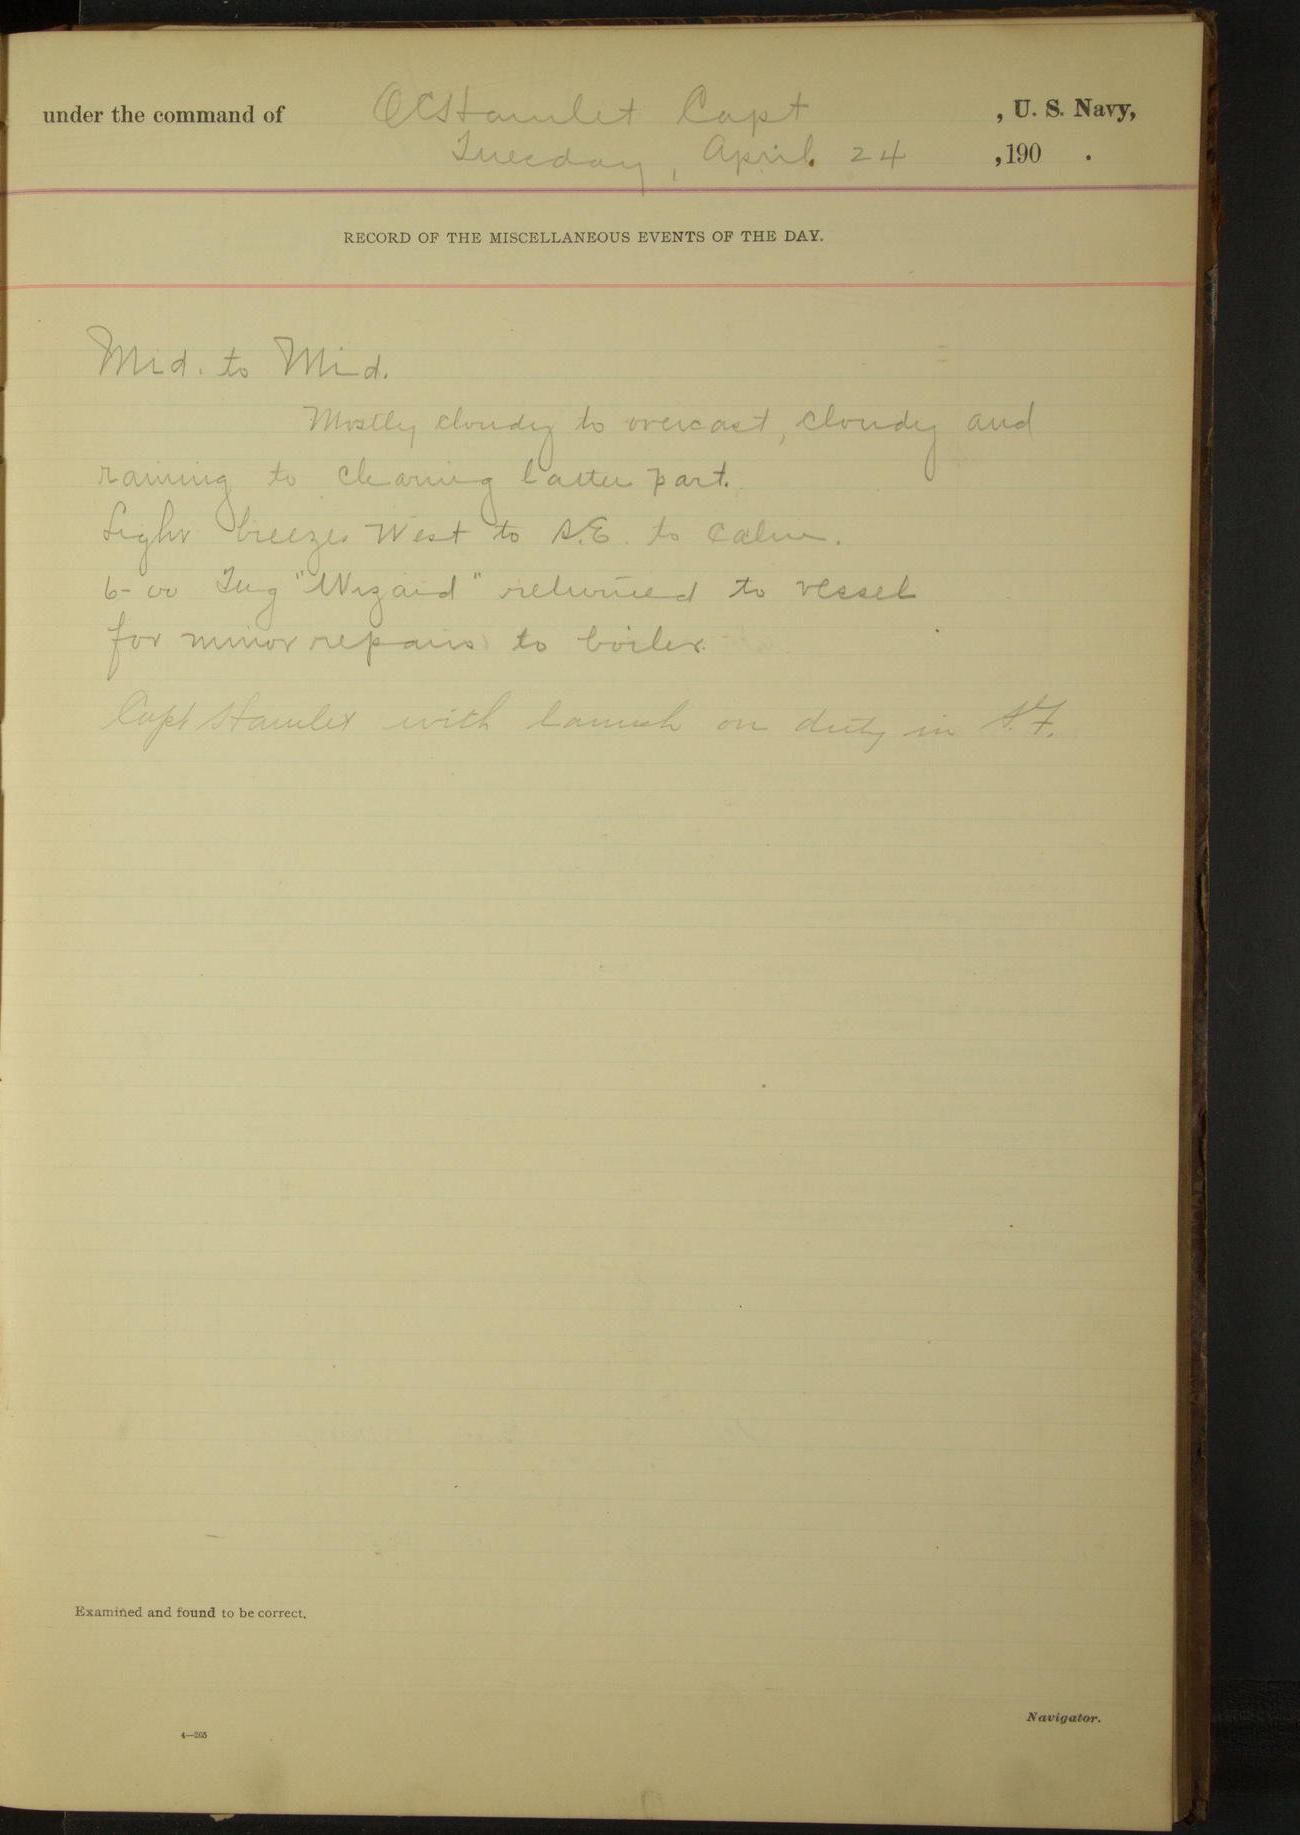 under the command of O C Hamlet Capt , U. S. Navy,
Tuesday, April 24 ,190 .
RECORD OF THE MISCELLANEOUS EVENTS OF THE DAY.
Mid. to Mid.
Mostly cloudy to overcast, cloudy and
raining to clearing latter part.
Light breezes West to S.E. to Calm.
6-00 Tug "Wizard" returned to vessel
for minor repairs to boiler.
Capt Hamlet with launch on duty in S.F.
Examined and found to be correct.
Navigator.
4—265